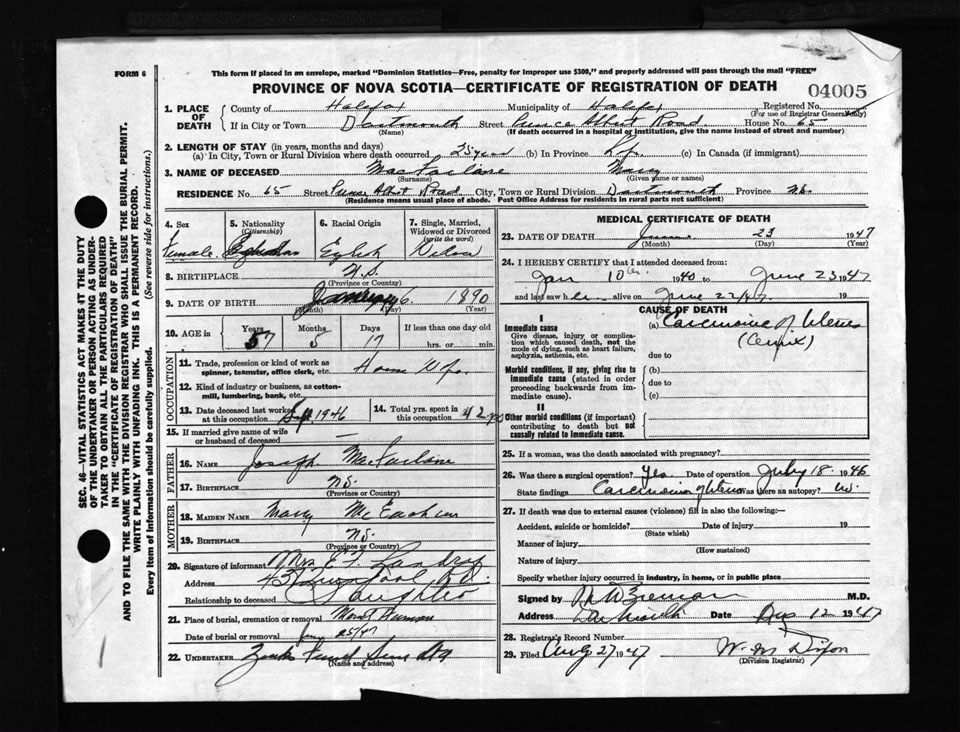 FORM 6
This form if placed in an envelope, marked "Dominion Statistics—Free, penalty for improper use $300," and properly addressed will pass through the mail "FREE"
PROVINCE OF NOVA SCOTIA—CERTIFICATE OF REGISTRATION OF DEATH
04005
1. PLACE OF DEATH
County of Halifax Municipality of Halifax Registered No.
(For use of Registrar General only)
If in City or Town Dartmouth Street Prince Albert Road House No. 65
(Name) (If death occurred in a hospital or institution, give the name instead of street and number)
2. LENGTH OF STAY (in years, months and days)
(a) In City, Town or Rural Division where death occurred 25 years (b) In Province Life (c) In Canada (if immigrant)
3. NAME OF DECEASED MacFarlane Mary
(Surname) (Given name or names)
RESIDENCE No. 65 Street Prince Albert Road City, Town or Rural Division Dartmouth Province N.S.
(Residence means usual place of abode. Post Office Address for rural parts not sufficient)
4. Sex Female
5. Nationality (Citizenship)
6. Racial Origin English
7. Single, Married, Widowed or Divorced (write the word) Widow
8. BIRTHPLACE N.S.
(Province or Country)
9. DATE OF BIRTH January 6 1890
(Month) (Date) (Year)
10. AGE in Years 57 Months 5 Days 17 If less than one day old hrs. or min.
OCCUPATION
11. Trade, profession or kind of work as spinner, teamster, office clerk, etc. Home Wife
12. Kind of industry or business, as cotton-mill, lumbering, bank, etc.
13. Date deceased last worked at this occupation Sept 1946
14. Total yrs. spent in this occupation 42 yrs
15. If married give name of wife or husband of deceased —
FATHER
16. NAME Joseph MacFarlane
17. BIRTHPLACE N.S.
(Province or Country)
MOTHER
18. MAIDEN NAME Mary McEachern
19. BIRTHPLACE N.S.
(Province or Country)
20. Signature of informant Mrs E F Landry
Address 43 Liverpool St.
Relationship to deceased Daughter
21. Place of burial, cremation or removal Mount Hermon
Date of burial or removal 25/47
22. UNDERTAKER Zinks Funeral Service Ltd
(Name and address)
MEDICAL CERTIFICATE OF DEATH
23. DATE OF DEATH June 23 1947
(Month) (Day) (Year)
24. I HEREBY CERTIFY that I attended deceased from
Jan 10th 1940 to June 23 1947
and last saw her alive on June 22/47 19
CAUSE OF DEATH
I
Immediate cause
Give disease, injury or complication which caused death, not the mode of dying, such as heart failure, asphyxia, asthenia, etc.
(a) Carcinoma of Uterus
(Cervix)
due to
Morbid conditions, if any, giving rise to immediate cause (stated in order proceeding backwards from immediate cause).
(b)
due to
(c)
II
Other morbid conditions (if important) contributing to death but not causally related to immediate cause.
25. If a woman, was the death associated with pregnancy?
26. Was there a surgical operation? Yes Date of operation July 18 1946
State findings Carcinoma of Uterus Was there an autopsy? No.
27. If death was due to external causes (violence) fill in also the following:—
Accident, suicide or homicide? Date of injury 19
(State which)
Manner of injury
(How sustained)
Nature of injury
Specify whether injury occurred in industry, in home, or in public place
Signed by M.D.
Address Dartmouth Date Aug 12 1947
28. Registrar's Record Number
29. Filed Aug 27 1947 W. M. Dixon
(Division Registrar)
SEC. 46—VITAL STATISTICS ACT MAKES IT THE DUTY
OF THE UNDERTAKER OR PERSON ACTING AS UNDER-
TAKER TO OBTAIN ALL THE PARTICULARS REQUIRED
IN THE "CERTIFICATE OF REGISTRATION OF DEATH"
AND TO FILE THE SAME WITH THE DIVISION REGISTRAR WHO SHALL ISSUE THE BURIAL PERMIT.
WRITE PLAINLY WITH UNFADING INK. THIS IS A PERMANENT RECORD.
Every item of Information should be carefully supplied. (See reverse side for instructions.)